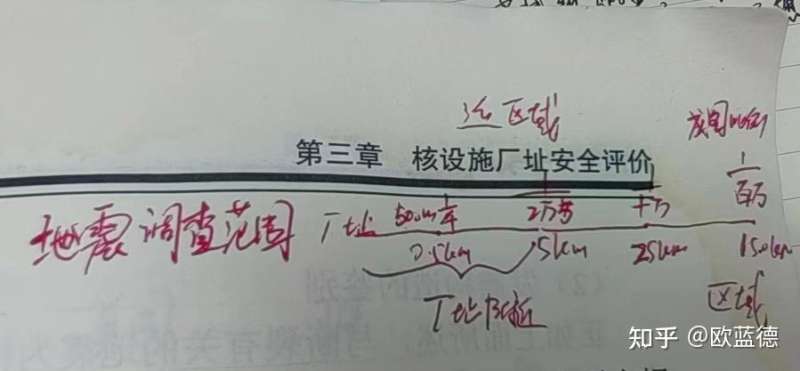 近区域
成图比例
第三章 核设施厂址安全评价
1/百万
地震调查范围
厂址
十万
0.5km
5km
25km
150km
厂址附近
区域
知乎 @欧蓝德